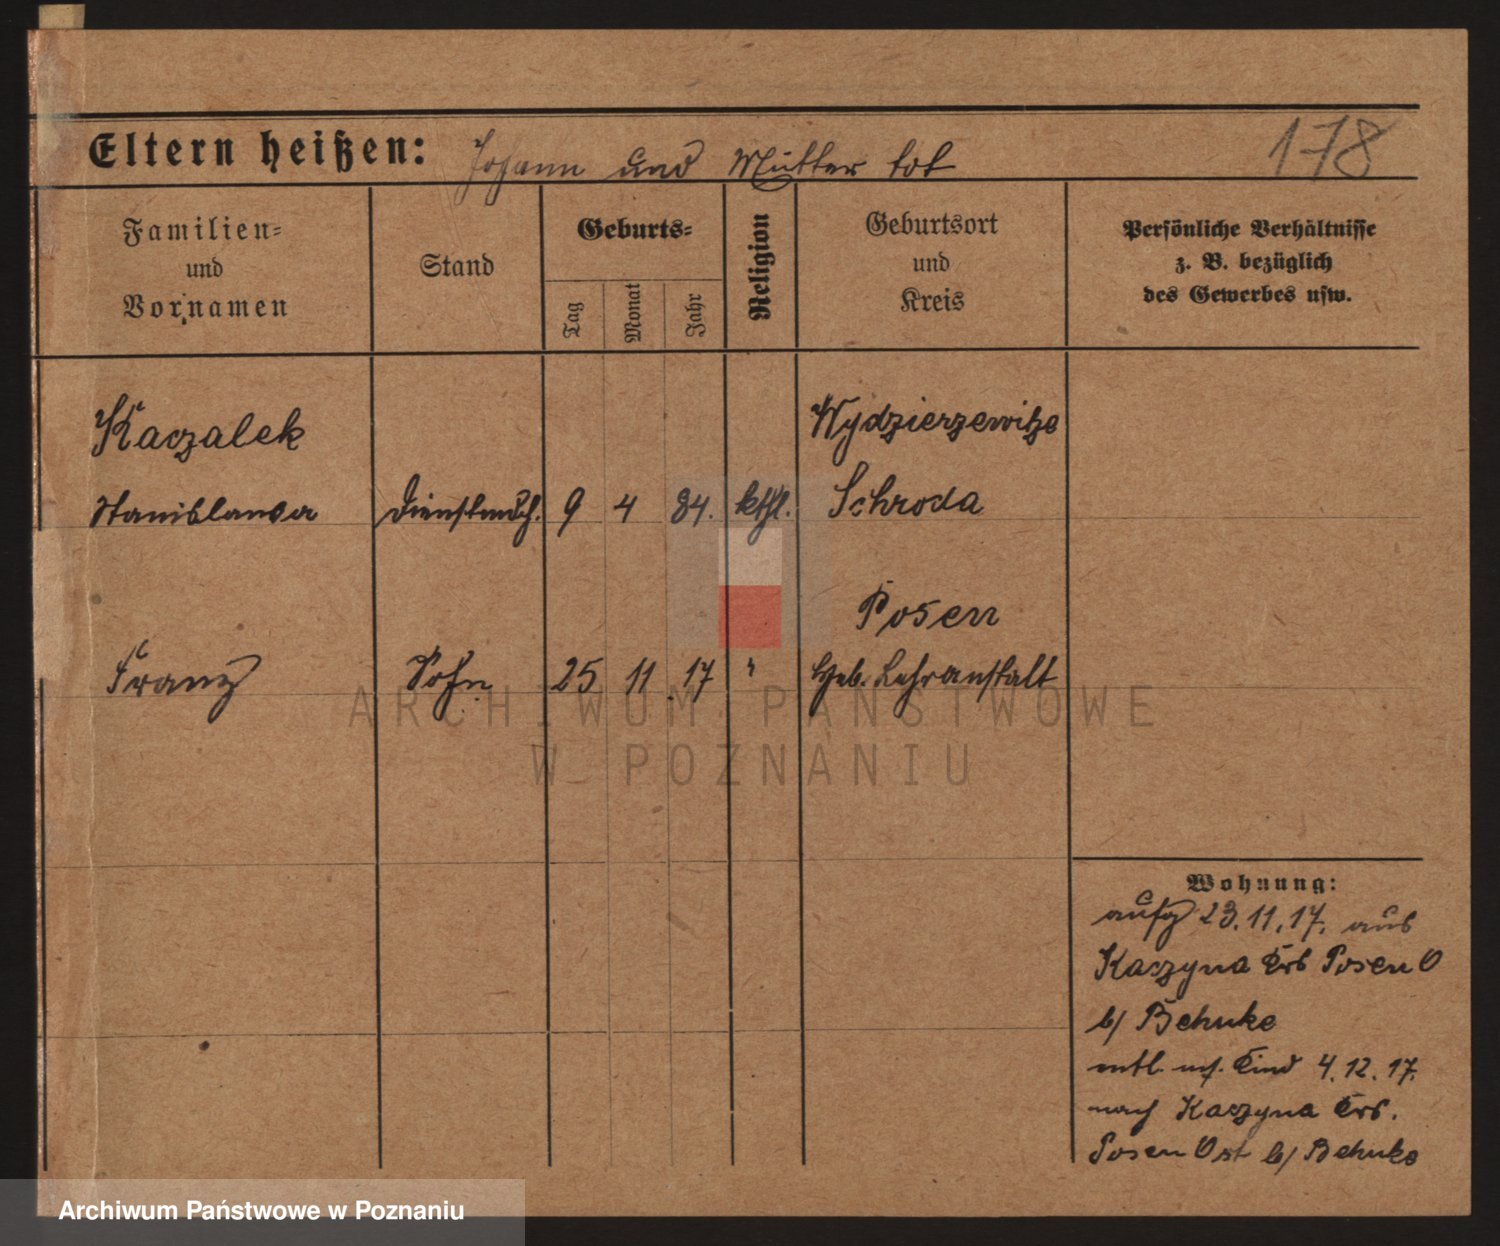 Eltern heißen: Johann und Mutter tot
178
Familien=
und
Vornamen
Stand
Geburts=
Tag
Monat
Jahr
Religion
Geburtsort
und
Kreis
Persönliche Verhältnisse
z. B. bezüglich
des Gewerbes usw.
Kaczalek
Wydzierzewitze
Stanislawa Dienstmdch. 9 4 84. kthl. Schroda
Posen
Franz Sohn 25 11 17 " Heb. Lehranstalt
Wohnung:
aufg 23.11.17. aus
Kaczyna Krs Posen O
b/ Behnke
entl. m. Kind 4.12.17.
nach Kaczyna Krs.
Posen Ost b/ Behnke
ARCHIWUM PAŃSTWOWE
W POZNANIU
Archiwum Państwowe w Poznaniu